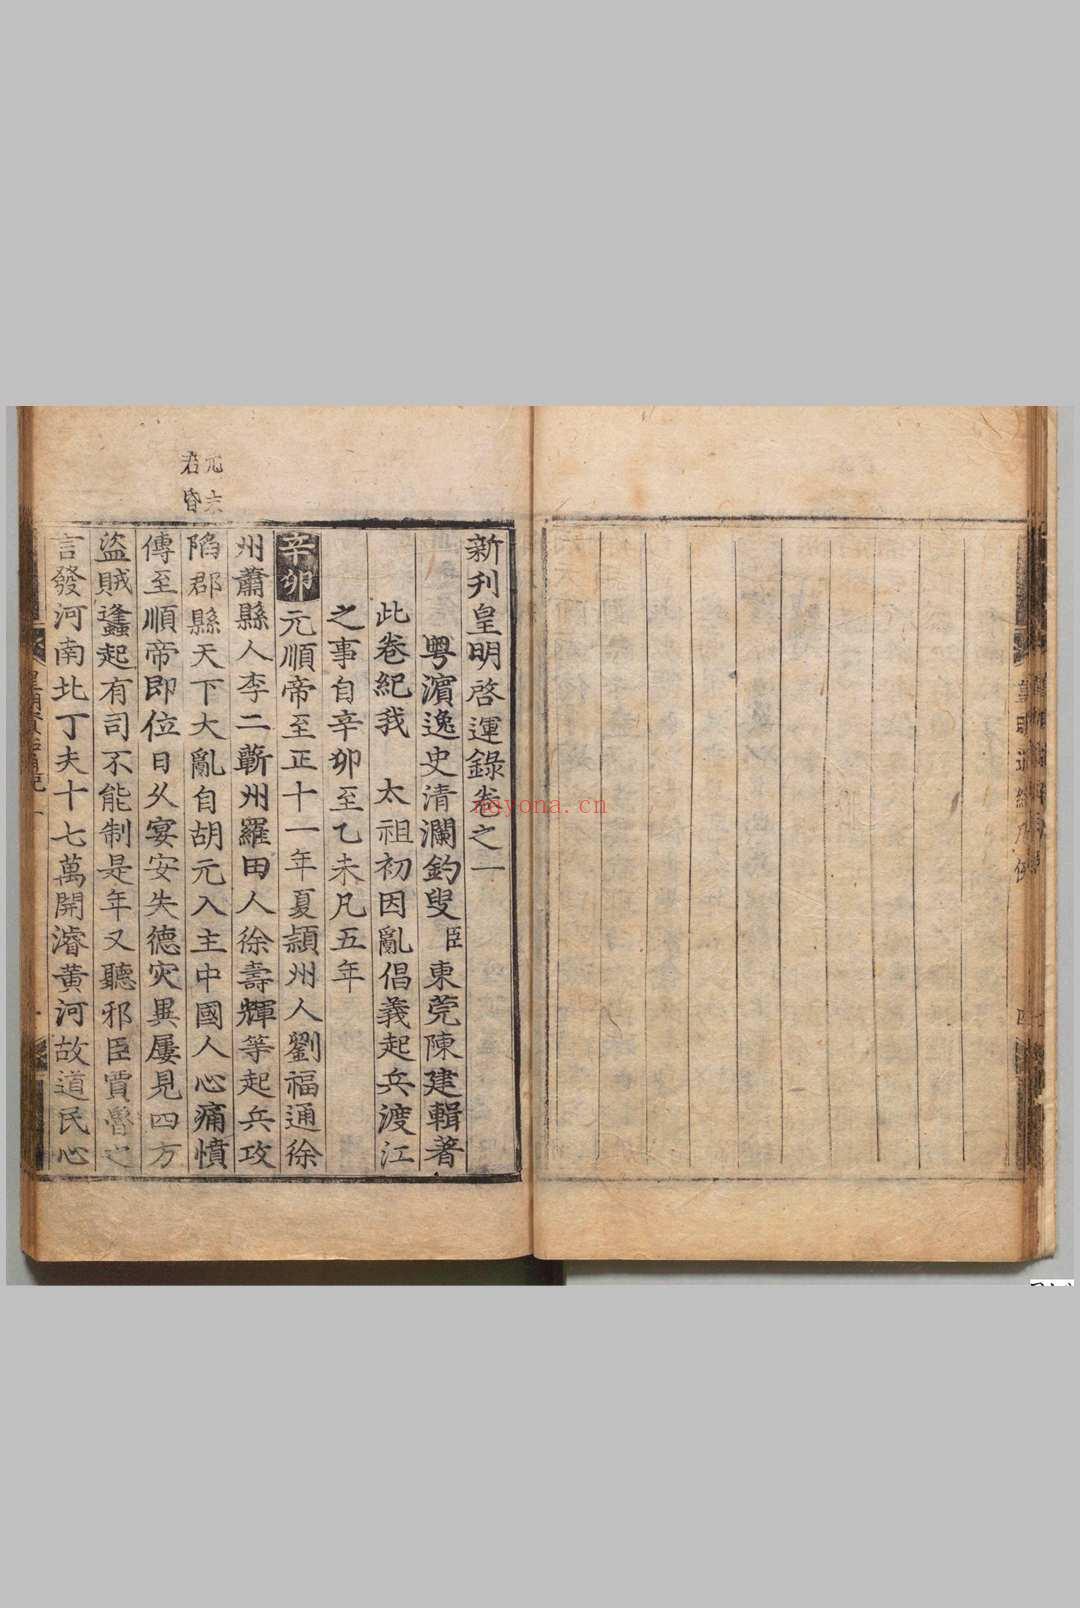 新刊皇明啓運錄卷之一
粤濵逸史清瀾釣叟臣東莞陳建輯著
此卷紀我　太祖初因亂倡義起兵渡江
之事自辛卯至乙未凡五年
辛卯元順帝至正十一年夏潁州人劉福通徐
州蕭縣人李二蘄州羅田人徐壽輝等起兵攻
元末
君昏
陷郡縣天下大亂自胡元入主中國人心痛憤
傳至順帝即位日乆宴安失德灾異屢見四方
盜賊蠭起有司不能制是年又聽邪臣賈魯之
言發河南北丁夫十七萬開濬黄河故道民心